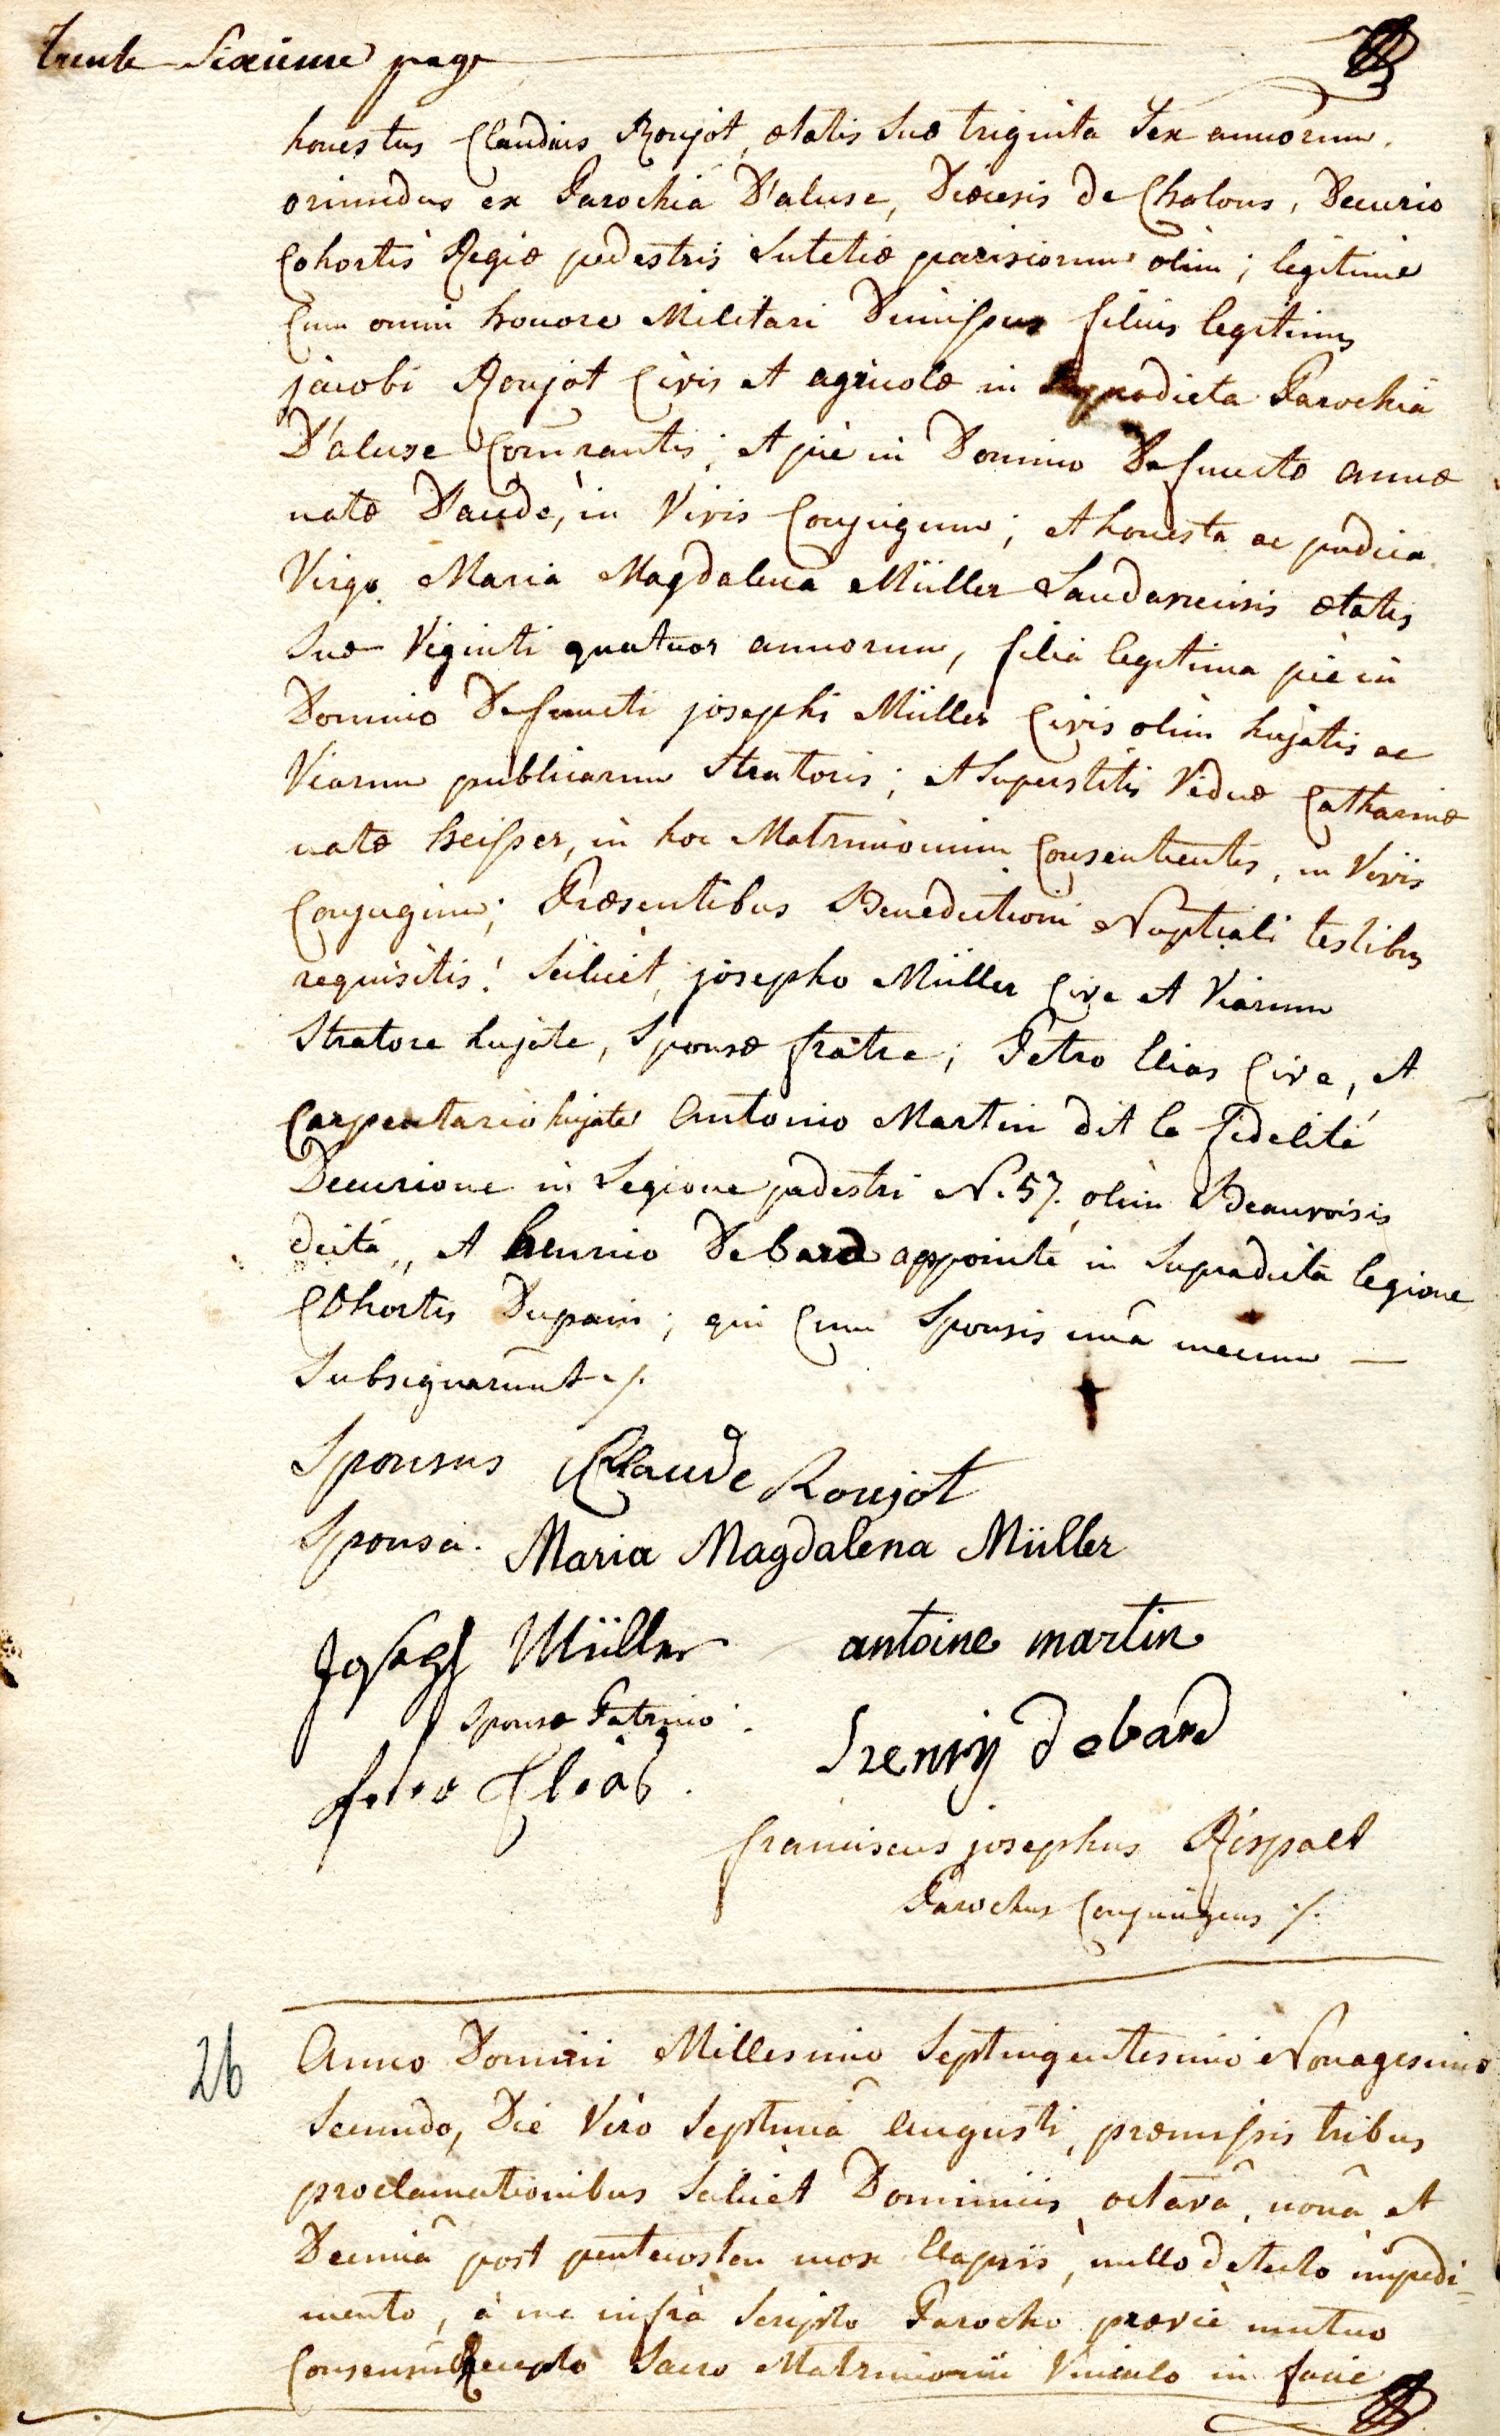 trente Sixieme page
honestus Claudius Roujot, ætatis suæ triginta sex annorum.
oriundus ex Parochia D'aluse, Diœcesis de Chalons, Decurio
Cohortis Regiæ pedestris Lutetiæ parisiorum olim; legitime
Cum omni honore Militari Dimissus filius legitimus
jacobi Roujot Civis et agricolæ in prædicta Parochiâ
D'aluse Com̄rantis; et piè in Domino Defunctæ annæ
natæ Daudé, in Vivis Conjugum; et honesta ac pudica
Virgo Maria Magdalena Müller Landaviensis ætatis
suæ Viginti quatuor annorum, filia legitima piè in
Domino Defuncti josephi Müller Civis olim hujatis ac
Viarum publicarum Stratoris; et Superstitis Viduæ Catharinæ
natæ heisser, in hoc Matrimonium Consentientis, in Vivis
Conjugum; Præsentibus Benedictioni Nuptiali testibus
requisitis! Scilicèt, josepho Müller Cive et Viarum
Stratore hujate, Sponsæ fratre; Petro Elias Cive, et
Carpentario hujate Antonio Martin dit la fidelité
Decurione in Legione pedestri N. 57. olim Beauvoisis
dicta,, et henrico Debard appointé in Supradicta legione
Cohortis Dupain; qui Cum Sponsis unâ mecum —
Subsignarunt ./.
Sponsus Claude Roujot
Sponsa. Maria Magdalena Müller
Joseph Müller antoine martin
sponsæ Patruo. henry debard
Elias.
franciscus josephus Rispalt
Parochus Conjungens ./.
26 Anno Domini Millesimo Septingentesimo Nonagesimo
Secundo, Die Vero Septimâ Augusti, præmissis tribus
proclamationibus Scilicèt Dominicis, octavâ, nonâ et
Decimâ post pentecosten mox Elapsis, nullo detecto impedi=
mento, à me infrà Scripto Parocho prævie mutuo
Consensu Recepto Sacro Matrimonii Vinculo in facie